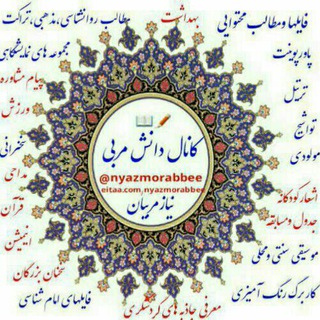 فایلها و مطالب محتوایی
بهداشت
مطالب روانشناسی،مذهبی،تراکت
پاورپوینت
مجموعه های نمایشگاهی
ترتیل
پیام مشاوره
تواشیح
ورزش
مولودی
سخنرانی
مداحی
اشعار کودکانه
قرآن
جدول و مسابقه
انیمیشن
موسیقی سنتی و محلی
سخنان بزرگان
کاربرگ رنگ آمیزی
فایلهای امام شناسی
معرفی جاذبه های گردشگری
کانال دانش مربی
@nyazmorabbee
eitaa.com/nyazmorabbee
نیاز مربیان